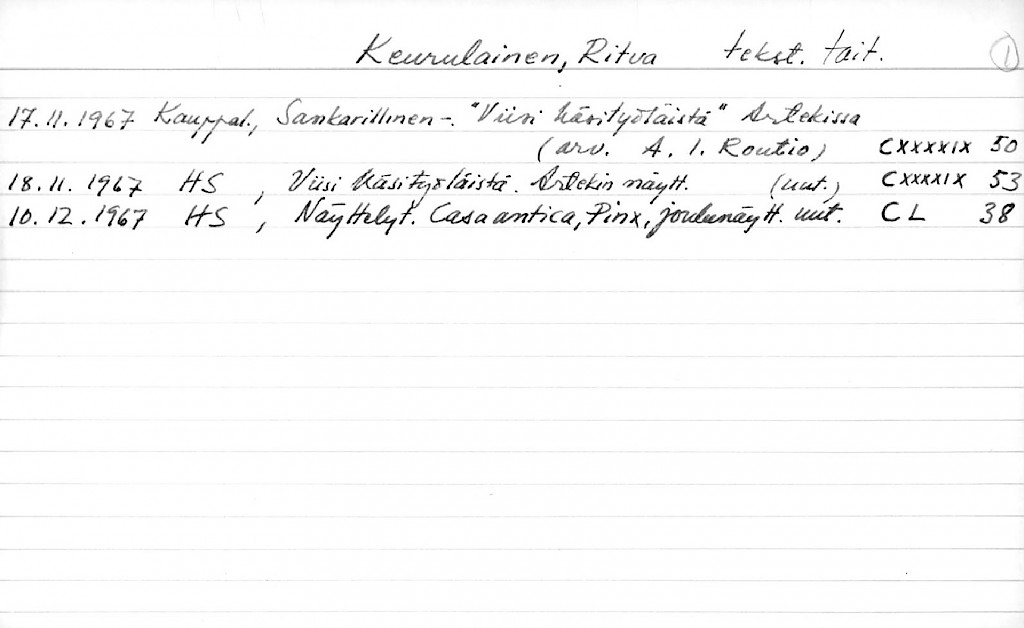 Keurulainen, Ritva tekst. tait. 1
17.11.1967 Kauppal., Sankarillinen -. "Viisi käsityöläistä" Artekissa
(arv. A. I. Routio) CXXXXIX 50
18.11.1967 HS, Viisi käsityöläistä. Artekin näytt. (uut.) CXXXXIX 53
10.12.1967 HS, Näyttelyt. Casa antica, Pinx, joulunäytt. uut. CL 38